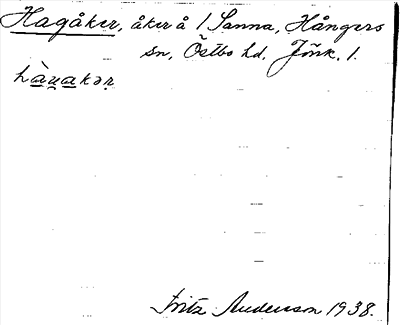 Hagåker, åker å 1 Sanna, Hångers
sn, Östbo hd. Jönk. l.
hàu̯akər
Fritz Andersson 1938.